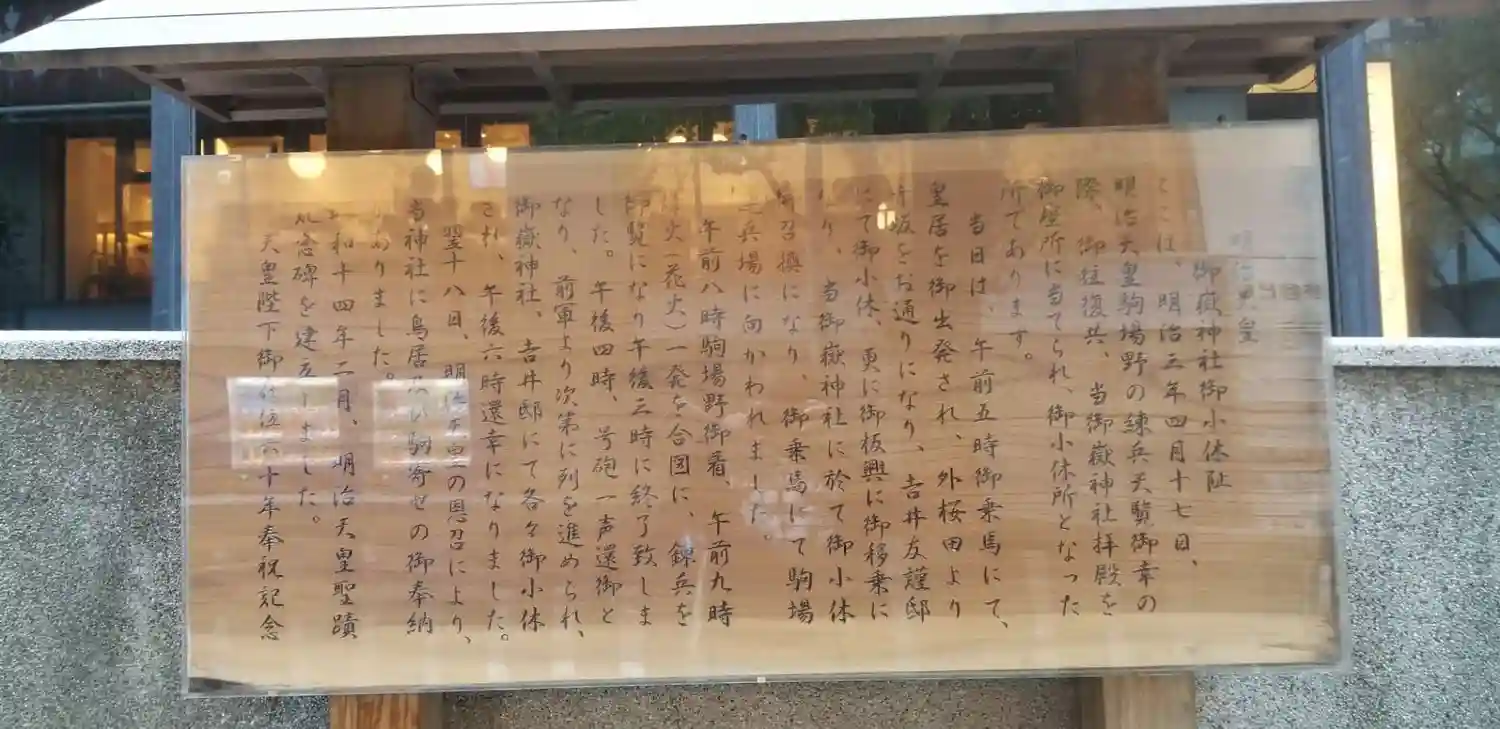 明治天皇
御嶽神社御小休趾
ここは、明治三年四月十七日、
明治天皇駒場野の練兵天覧御幸の
際、御往復共、当御嶽神社拝殿を
御座所に当てられ、御小休所となった
所であります。
当日は、午前五時御乗馬にて、
皇居を御出発され、外桜田より
坂をお通りになり、吉井友謹邸
にて御小休、更に御板輿に御移乗に
なり、当御嶽神社に於て御小休
御召換になり、御乗馬にて駒場
兵場に向かわれました。
午前八時駒場野御着、午前九時
火(花火)一発を合図に、錬兵を
御覧になり午後三時に終了致しま
した。午後四時、号砲一声還御と
なり、前軍より次第に列を進められ、
御嶽神社、吉井邸にて各々御小休
され、午後六時還幸になりました。
翌十八日、明治天皇の恩召により、
当神社に鳥居及い駒寄せの御奉納
がありました。
昭和十四年二月、明治天皇聖蹟
記念碑を建立しました。
天皇陛下御在位六十年奉祝記念